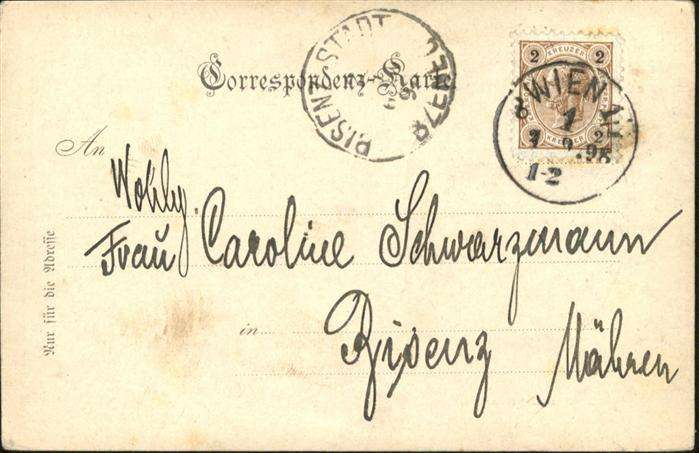 Correspondenz-Karte.
BISENZ STADT
2 KREUZER 2
2 KREUZER 2
WIEN
1
9.98
1-2
An
Wohlg.
Frau Caroline Schwarzmann
in Bisenz Mähren
Nur für die Adresse